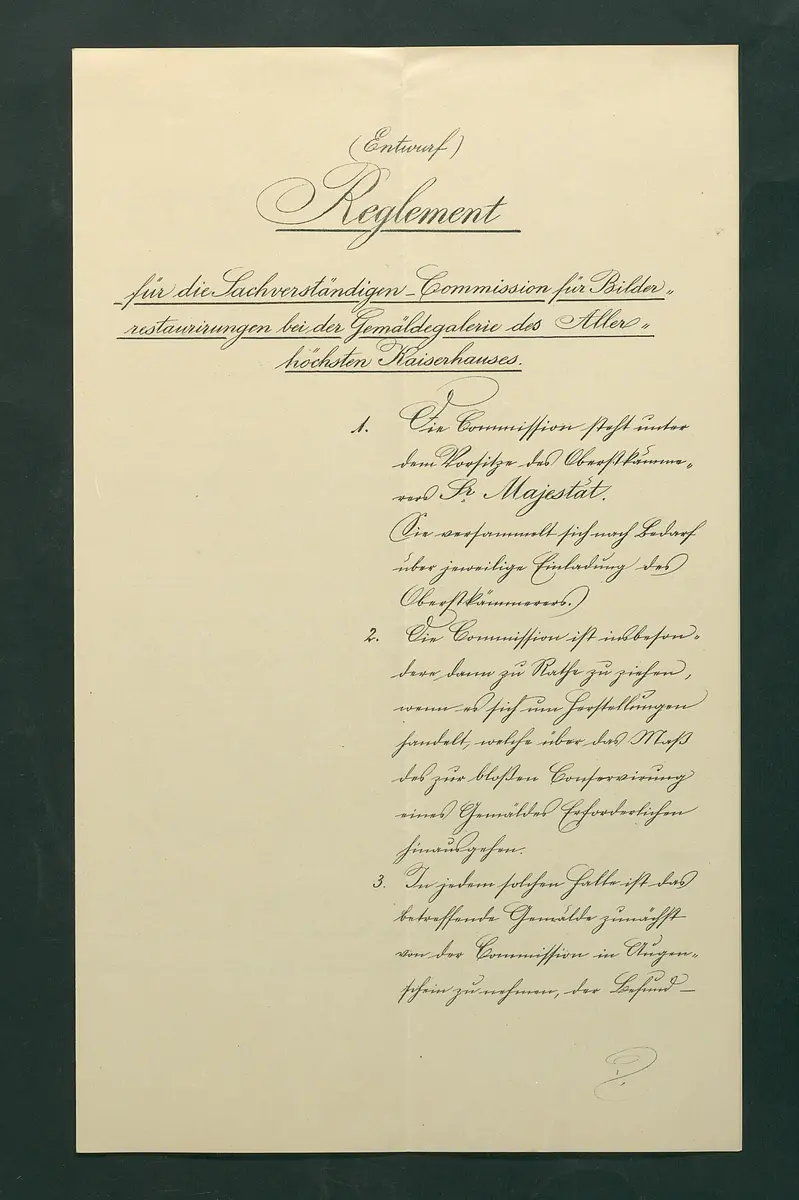 (Entwurf)
Reglement
für die Sachverständigen-Commission für Bilder-
restaurirungen bei der Gemäldegalerie des Aller-
höchsten Kaiserhauses.
1. Die Commission steht unter
dem Vorsitze des Oberstkämme-
rers Sr. Majestät.
(Sie versammelt sich nach Bedarf
über jeweilige Einladung des
Oberstkämmerers.)
2. Die Commission ist insbeson-
dere dann zu Rathe zu ziehen,
wenn es sich um Herstellungen
handelt, welche über das Maß
des zur bloßen Conservirung
eines Gemäldes Erforderlichen
hinausgehen.
3. In jedem solchen Falle ist das
betreffende Gemälde zunächst
von der Commission in Augen-
schein zu nehmen, der Befund